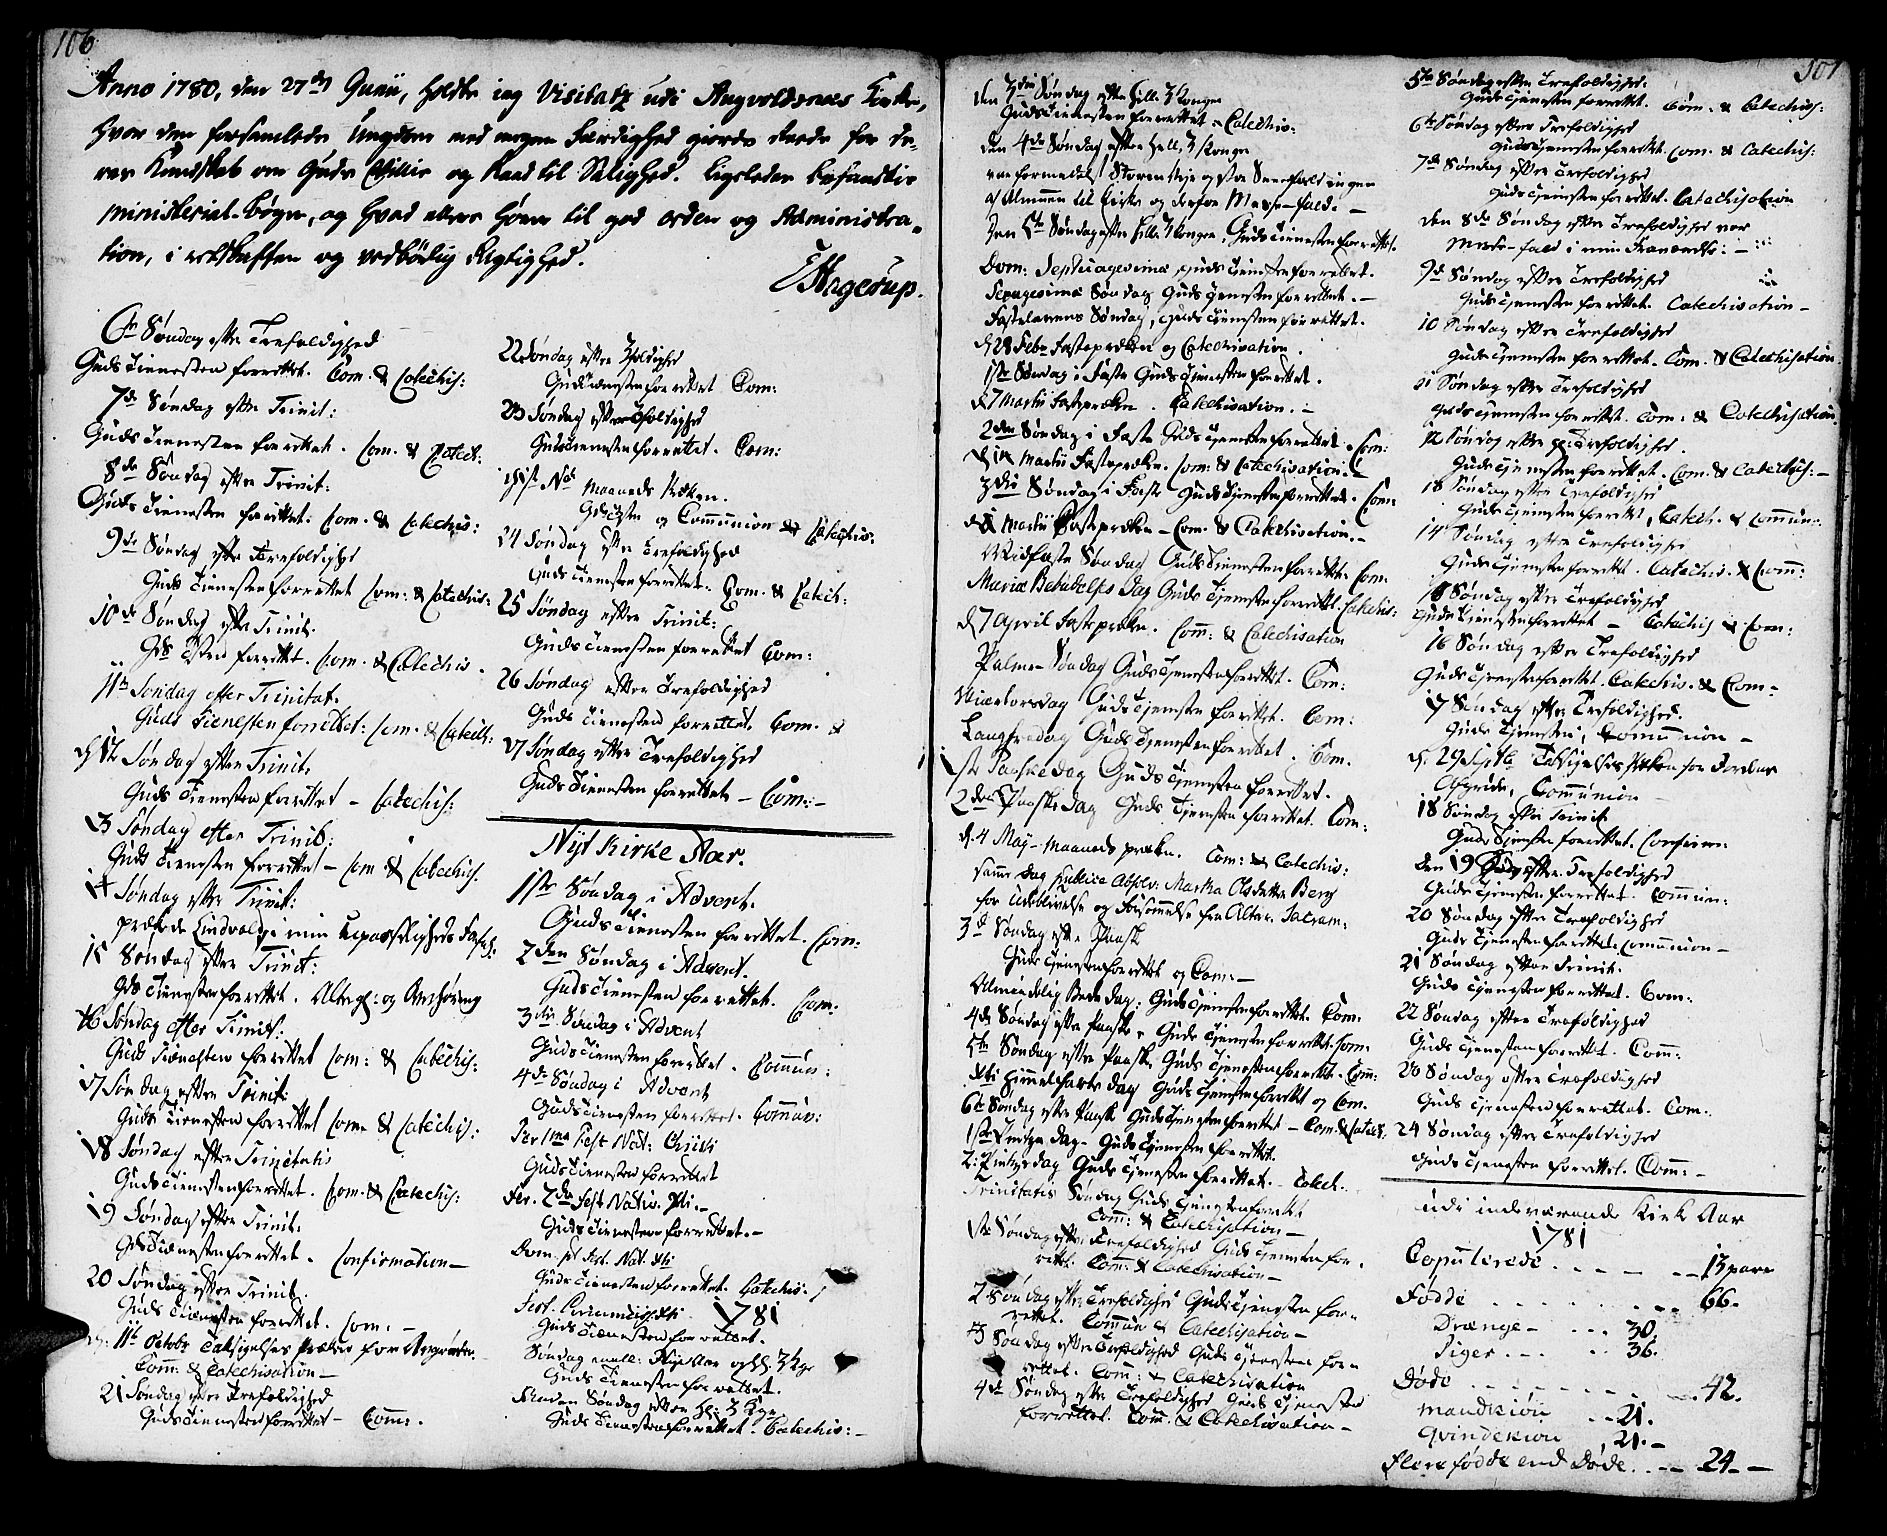 106
Anno 1780, den 27de Junii, holdte jeg Visitatz udi Angvoldsnæs Kirke,
hvor den forsamlede Ungdom med megen Færdighed giorde Rede for de-
res Kundskab om Guds Villie og Raad til Salighed. Ligeledes befandtes
ministerial-bøger, og hvad ellers hører til god orden og Administra-
tion, i ertskaffen og vedbørlig Rigtighed.
E Hagerup.
6te Søndag efter Trefoldighed
Guds Tienesten forrettet. Com. & Catechis:
7de Søndag efter Trinit:
Guds Tienesten forrettet. Com. & Catech:
8de Søndag efter Trinit:
Guds Tienesten forrettet. Com. & Catechis:
9de Søndag efter Trefoldighed
Guds Tienesten forrettet Com: & Catechis:
10de Søndag efter Trinit.
Gds Tsten forrettet. Com. & Catechis.
11te Søndag efter Trinitat.
Guds Tienesten forrettet: Com. & Catech:
d. 12 Søndag efter Trinit.
Guds Tienesten forrettet - Catechis:
13 Søndag efter Trinit:
Guds Tienesten forrettet - Com & Catechis.
14 Søndag efter Trinit:
prækede Lindvald i min Upasseligheds
15 Søndag efter Trinit:
Gds Tienesten forrettet. Alterg: og
16 Søndag efter Trinit:
Guds Tienesten forrettet Com: & Catechis:
17 Søndag efter Trinit:
Guds Tienesten forrettet Com & Catechis:
18 Søndag efter Trinitatis
Guds Tienesten forrettet. Com. & Catechis:
19 Søndag efter Trinit.
Gds Tienesten forrettet. Confirmation -
20 Søndag efter Trinit.
Guds Tienesten forrettet. Com: -
d. 11te Octobr Taksigelses Præken for
Com: & Catechisation -
21 Søndag efter Trefoldighed
Guds Tienesten forrettet - Com:.
22 Søndag efter Trefoldighed
Guds Tienesten forrettet Com:
23 Søndag efter Trefoldighed
Guds Tienesten forrettet. Com:
Maaneds Præken.
og Communion & Catechis:
24 Søndag efter Trefoldighed
Guds Tienesten forrettet. Com. & Catech:
25 Søndag efter Trinit:
Guds Tienesten forrettet Com:
26 Søndag efter Trefoldighed
Guds Tienesten forrettet. Com. &
27 Søndag efter Trefoldighed
Guds Tienesten forrettet - Com: -
Nyt Kirke Aar.
1ste Søndag i Advent.
Guds Tienesten forrettet. Com:
2den Søndag i Advent.
Guds Tienesten forrettet. Com:
3die Søndag i Advent
Guds Tienesten forrettet. Commun:
4de Søndag i Advent
Guds Tienesten forrettet. Commun:
Fer 1ma Fest Nat: Christi
Guds Tienesten forrettet
Fer. 2da Fest Nativ. Xti. -
Guds Tienesten forrettet. -
Dom. pt fest. Nat. Xti
Guds Tienesten forrettet. Catechis:
Fest. Circumcis: Xti 1781
Guds Tienesten forrettet.
Søndag emell: Nyt Aar og H 3 Kgr
Guds Tienesten forrettet.
Anden Søndag efter Hl: 3 Kgr.
Guds Tienesten forrettet. Catechis: -
107
den 3die Søndag efter hell. 3 Konger
Guds Tienesten forrettet. Catechis:
den 4de Søndag efter hell. 3 Konger
var formedelst Storm Veje og stor Sneefald ingen
af Almuen til Kirke og derfor Messe-fald -
Den 5te Søndag efter hell. 3 Konger, Guds Tienesten forrettet.
Dom: Septuagesima Guds Tiensten forrettet.
Sexagesima Søndag Guds Tjensten forrettet. -
Fastelavens Søndag, Guds Tiensten forrettet.
d. 28 Febr Fastepræken og Catechisation.
1ste Søndag i Faste Guds Tjensten forrettet.
d. 7 Martii Fastepræken. Catechisation. -
2den Søndag i Faste Guds Tjensten forrettet. Com:
d. 14 Martii Fastepræken. Com: & Catechisation. -
3die Søndag i Faste Guds Tjensten forrettet. Com.
d. Martii Fastepræken - Com. & Catechisation. -
Midfaste Søndag Guds Tiensten forrettet. Com.
Mariæ Bebudelses Dag Guds Tjensten forrettet. Catechis:
d. 7 April Fastepræken. Comm: & Catechisation
Palme Søndag Guds Tjensten forrettet. Com:
Skiærtorsdag Guds Tjensten forrettet. Com:
Langfredag Guds Tjensten forrettet. Com.
1ste Paaskedag Guds Tjensten forrettet.
2den Paaskedag Guds Tjensten forrettet. Com:
d. 4 Maj - Maaneds præken. Com: & Catechis:
samme dag publice Absolv: Martha Olsdatter Berg
for Udeblivelse og Forsømmelse fra Alter. Sacram:
3de Søndag efter Paaske
Guds Tjensten forrettet og Com: -
Almindelig Bededag: Guds Tjensten forrettet. Com.
4de Søndag efter Paaske. Guds Tjensten forrettet. Com.
5te Søndag efter Paaske Guds Tjensten forrettet. Com:
Xti Himmelfarts dag Guds Tjensten forrettet og Com.
6te Søndag efter Paaske Guds Tjensten forrettet - Com & Catech.
1ste Pintze dag - Guds Tjensten forrettet.
2. Pintzedag Guds Tjensten forrettet. - Catech.
Trinitatis Søndag Guds Tjensten forrettet
Com: & Catechisation -
1ste Søndag efter Trefoldighed Guds Tjensten for-
rettet. Com: & Catechisation -
2 Søndag efter Trefoldighed Guds Tjensten for-
rettet. Commun & Catechisation -
3 Søndag efter Trefoldighed Guds Tjensten for-
rettet. Com: & Catechisation
4de Søndag efter Trefoldighed Guds Tjensten
forrettet. Com. & Catechisation -
5te Søndag efter Trefoldighed.
Guds Tjensten forrettet. Com. & Catechis:
6te Søndag efter Trefoldighed
Guds Tjensten forrettet. Com. & Catechis:
7de Søndag efter Trefoldighed
Guds Tjensten forrettet. Catechisation
den 8de Søndag efter Trefoldighed var
Messe-fald i min Fraværelse: -
9de Søndag efter Trefoldighed
Guds Tjensten forrettet. Catechisation -
10 Søndag efter Trefoldighed
Guds Tjensten forrettet. Com. & Catechisation
11 Søndag efter Trefoldighed
Guds Tjensten forrettet. Com: & Catechisation
12 Søndag efter Trefoldighed.
Guds Tjensten forrettet. Com. & Catechis: -
13 Søndag efter Trefoldighed
Guds Tjensten forrettet, Catech. & Commun:
14 Søndag efter Trefoldighed
Guds Tjensten forrettet. Catechis. & Com:
15 Søndag efter Trefoldighed
Guds Tjensten forrettet - Catechis & Com:
16 Søndag efter Trefoldighed
Guds Tjensten forrettet. Catechis. & Com -
17 Søndag efter Trefoldighed.
Guds Tjensten, Communion -
d. 29 Septb. Taksigelses Præken for Jordens
Afgrøde, Communion
18 Søndag efter Trinit.
Guds Tjensten forrettet. Confirm:
den 19 Søndag efter Trefoldighed
Guds Tjensten forrettet. Commun:
20 Søndag efter Trefoldighed
Guds Tjensten forrettet. Communion -
21 Søndag efter Trinit.
Guds Tjensten forrettet. Com:
22 Søndag efter Trefoldighed
Guds Tjensten forrettet. Com:
23 Søndag efter Trefoldighed
Guds Tjensten forrettet. Com.
24 Søndag efter Trefoldighed
Guds Tjensten forrettet. Com: -
udi indeværende Kirk Aar
1781
Copulerede . . . 13 pare
Fødde . . . 66.
Drænge - . . . 30.
Piger . . . 36.
Døde . . . 42.
Mandkiøn . . 21.
Qvindekiøn 21. -
flere fødde end Døde . . - 24 - -